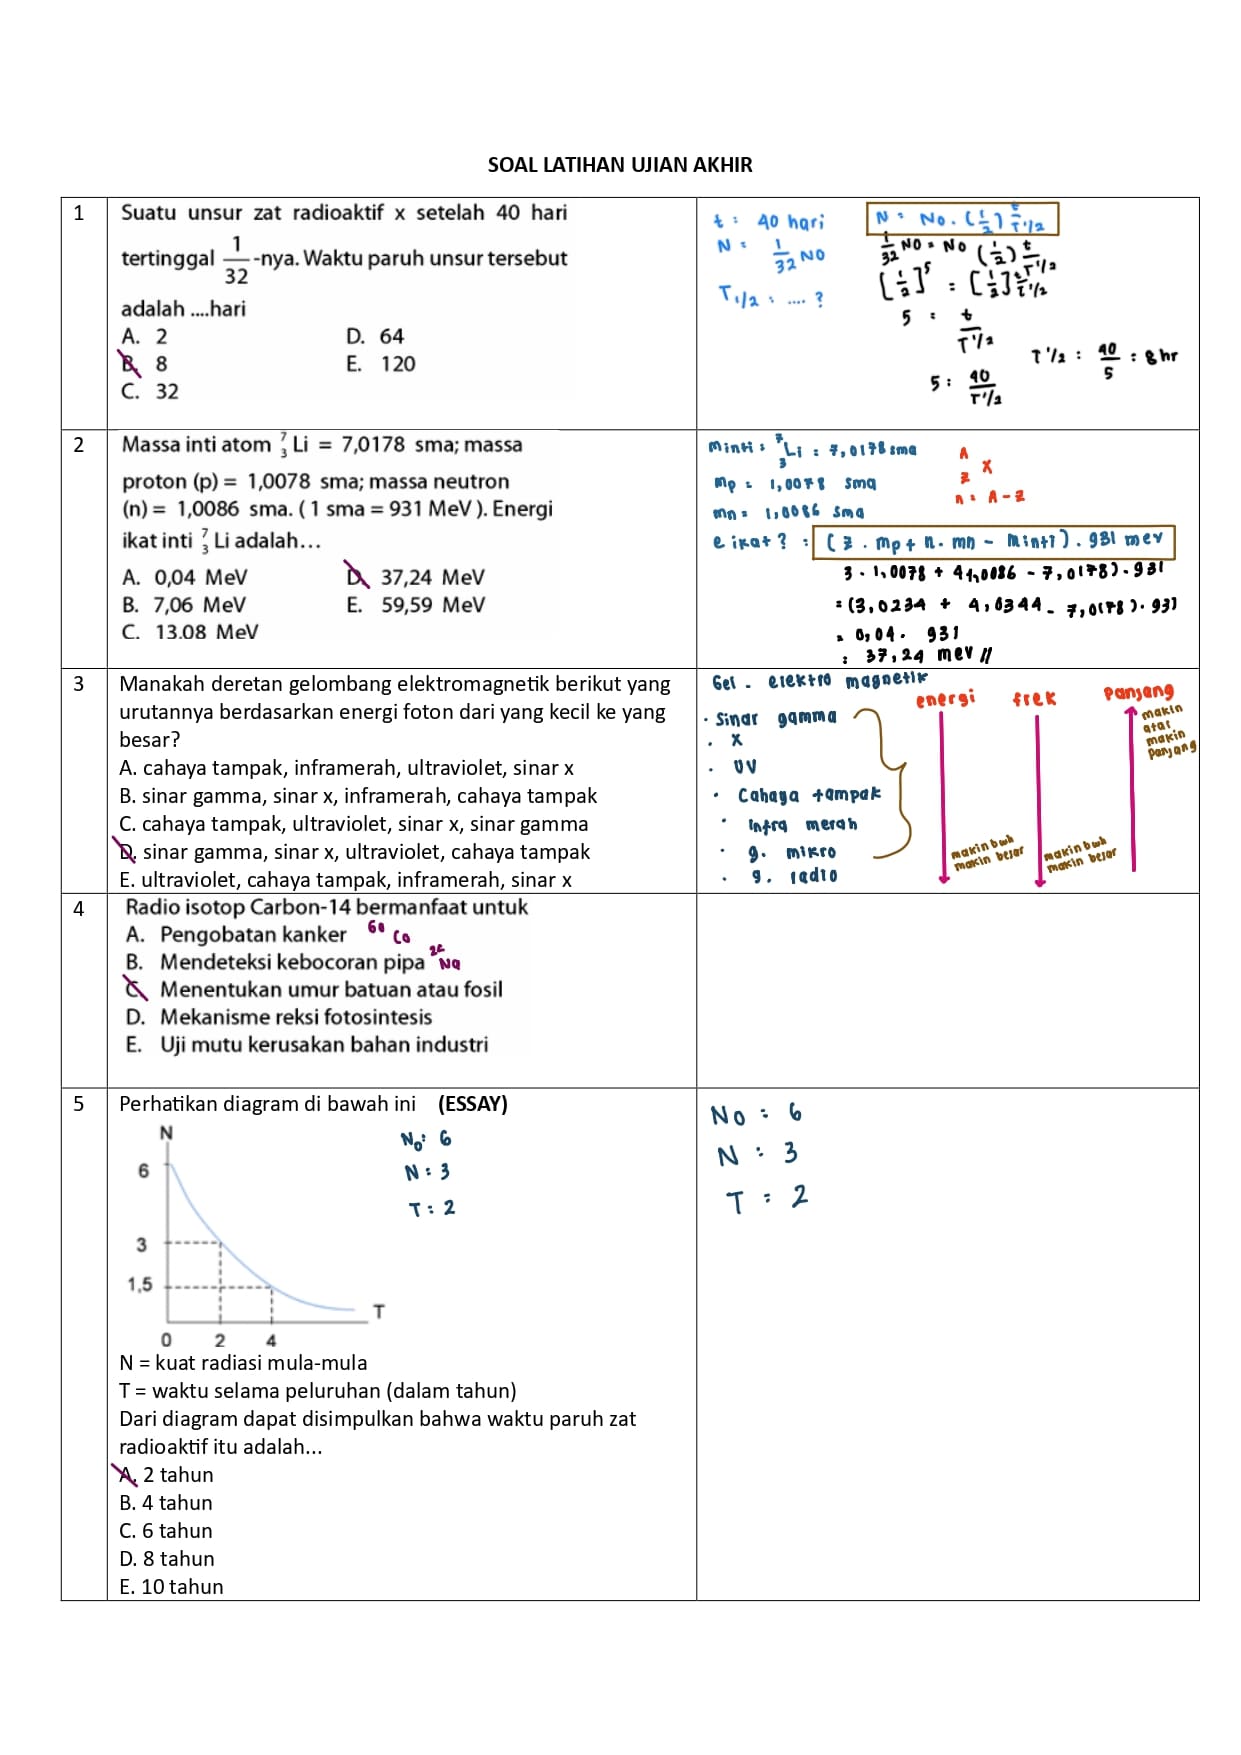 SOAL LATIHAN UJIAN AKHIR
1
Suatu unsur zat radioaktif x setelah 40 hari
tertinggal 1/32 -nya. Waktu paruh unsur tersebut
adalah ....hari
A. 2 D. 64
B. 8 E. 120
C. 32
t : 40 hari
N : 1/32 No
T1/2 : .... ?
N : No . (1/2) t/T1/2
1/32 No = No (1/2) t/T1/2
[1/2]5 : [1/2] t/T1/2
5 : t/T1/2
5 : 40/T1/2
T1/2 : 40/5 : 8 hr
2
Massa inti atom 7 3 Li = 7,0178 sma; massa
proton (p) = 1,0078 sma; massa neutron
(n) = 1,0086 sma. ( 1 sma = 931 MeV ). Energi
ikat inti 7 3 Li adalah…
A. 0,04 MeV D. 37,24 MeV
B. 7,06 MeV E. 59,59 MeV
C. 13.08 MeV
minti : 7 3 Li : 7,0178 sma
mp = 1,0078 sma
mn = 1,0086 sma
A Z X
n = A - Z
e ikat ? : (z . mp + n . mn - minti) . 931 mev
3 . 1,0078 + 4 1,0086 - 7,0178) . 931
= (3,0234 + 4,0344 - 7,0178) . 931
= 0,04 . 931
: 37,24 mev //
3
Manakah deretan gelombang elektromagnetik berikut yang
urutannya berdasarkan energi foton dari yang kecil ke yang
besar?
A. cahaya tampak, inframerah, ultraviolet, sinar x
B. sinar gamma, sinar x, inframerah, cahaya tampak
C. cahaya tampak, ultraviolet, sinar x, sinar gamma
D. sinar gamma, sinar x, ultraviolet, cahaya tampak
E. ultraviolet, cahaya tampak, inframerah, sinar x
Gel . elektro magnetik
. Sinar gamma
. X
. UV
. Cahaya tampak
. Infra merah
. g. mikro
. g. radio
energi frek Panjang
makin
atas
makin
panjang
makin bwh
makin besar
makin bwh
makin besar
4
Radio isotop Carbon-14 bermanfaat untuk
A. Pengobatan kanker 60 Co
B. Mendeteksi kebocoran pipa 24 Na
C. Menentukan umur batuan atau fosil
D. Mekanisme reksi fotosintesis
E. Uji mutu kerusakan bahan industri
5
Perhatikan diagram di bawah ini (ESSAY)
N
6
3
1,5
0 2 4
T
No: 6
N : 3
T : 2
N = kuat radiasi mula-mula
T = waktu selama peluruhan (dalam tahun)
Dari diagram dapat disimpulkan bahwa waktu paruh zat
radioaktif itu adalah...
A. 2 tahun
B. 4 tahun
C. 6 tahun
D. 8 tahun
E. 10 tahun
No : 6
N : 3
T : 2